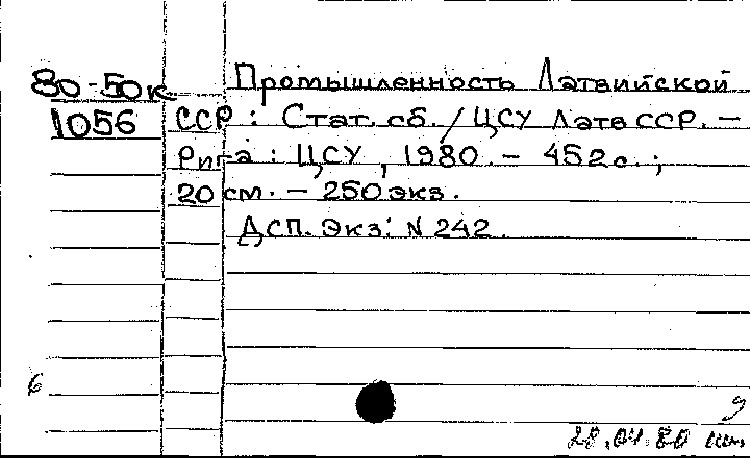 80-50к
1056
Промышленность Латвийской
ССР : Стат. сб. / ЦСУ Латв ССР. –
Рига : ЦСУ, 1980. – 452 с. ;
20 см. – 250 экз.
Дсп. Экз: N 242.
6
9
28.04.80